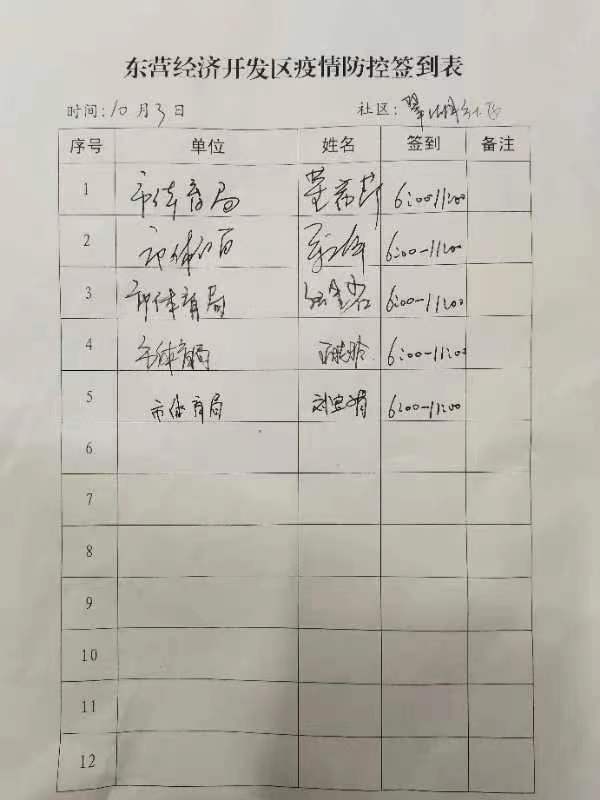 东营经济开发区疫情防控签到表
时间：10月3日 社区：
序号 单位 姓名 签到 备注
1 市体育局 6:00-11:00
2 市体育局 6:00-11:00
3 市体育局 6:00-11:00
4 市体育局 6:00-11:00
5 市体育局 6:00-11:00
6
7
8
9
10
11
12